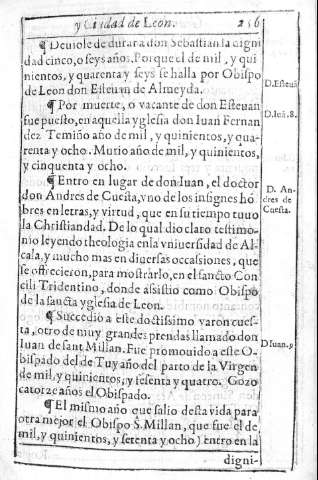 y Ciudad de Leon. 256
¶ Deuiole de durar a don Sebastian la digni
dad cinco, o seys años. Porque el de mil, y qui
nientos, y quarenta y seys se halla por Obispo
de Leon don Esteuan de Almeyda.
D.Esteuā
¶ Por muerte, o vacante de don Esteuan
fue puesto, en aquella yglesia don Iuan Fernan
D.Iuā.8.
dez Temiño año de mil, y quinientos, y qua-
renta y ocho. Murio año de mil, y quinientos,
y cinquenta y ocho.
¶ Entro en lugar de don Iuan, el doctor
don Andres de Cuesta, vno de los insignes hō
bres en letras, y virtud, que en su tiempo tuuo
D. An-
dres de
Cuesta.
la Christiandad. De lo qual dio claro testimo-
nio leyendo theologia en la vniuersidad de Al-
cala, y mucho mas en diuersas occassiones, que
se offrecieron, para mostrarlo, en el sancto Con
cili Tridentino, donde assistio como Obispo
de la sancta yglesia de Leon.
¶ Succedio a este doctissimo varon cues-
ta, otro de muy grandes prendas llamado don
Iuan de sant Millan. Fue promouido a este O-
D Iuan.9
bispado del de Tuy año del parto de la Virgen
de mil, y quinientos, y sesenta y quatro. Gozo
catorze años el Obispado.
¶ El mismo año que salio desta vida para
otra mejor el Obispo S. Millan, que fue el de
mil, y quinientos, y setenta y ocho) entro en la
digni-